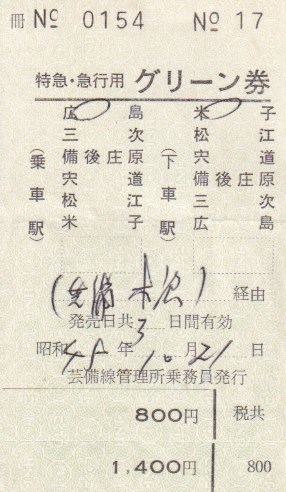 冊 № 0154 № 17
特急・急行用 グリーン券
(乗車駅)
広島
三次
備後庄原
宍道
松江
米子
(下車駅)
米子
松江
宍道
備後庄原
三次
広島
(芸備 木次) 経由
発売日共 3 日間有効
昭和 年 10 月 21 日
芸備線管理所乗務員発行
800円 税共
1,400円 800